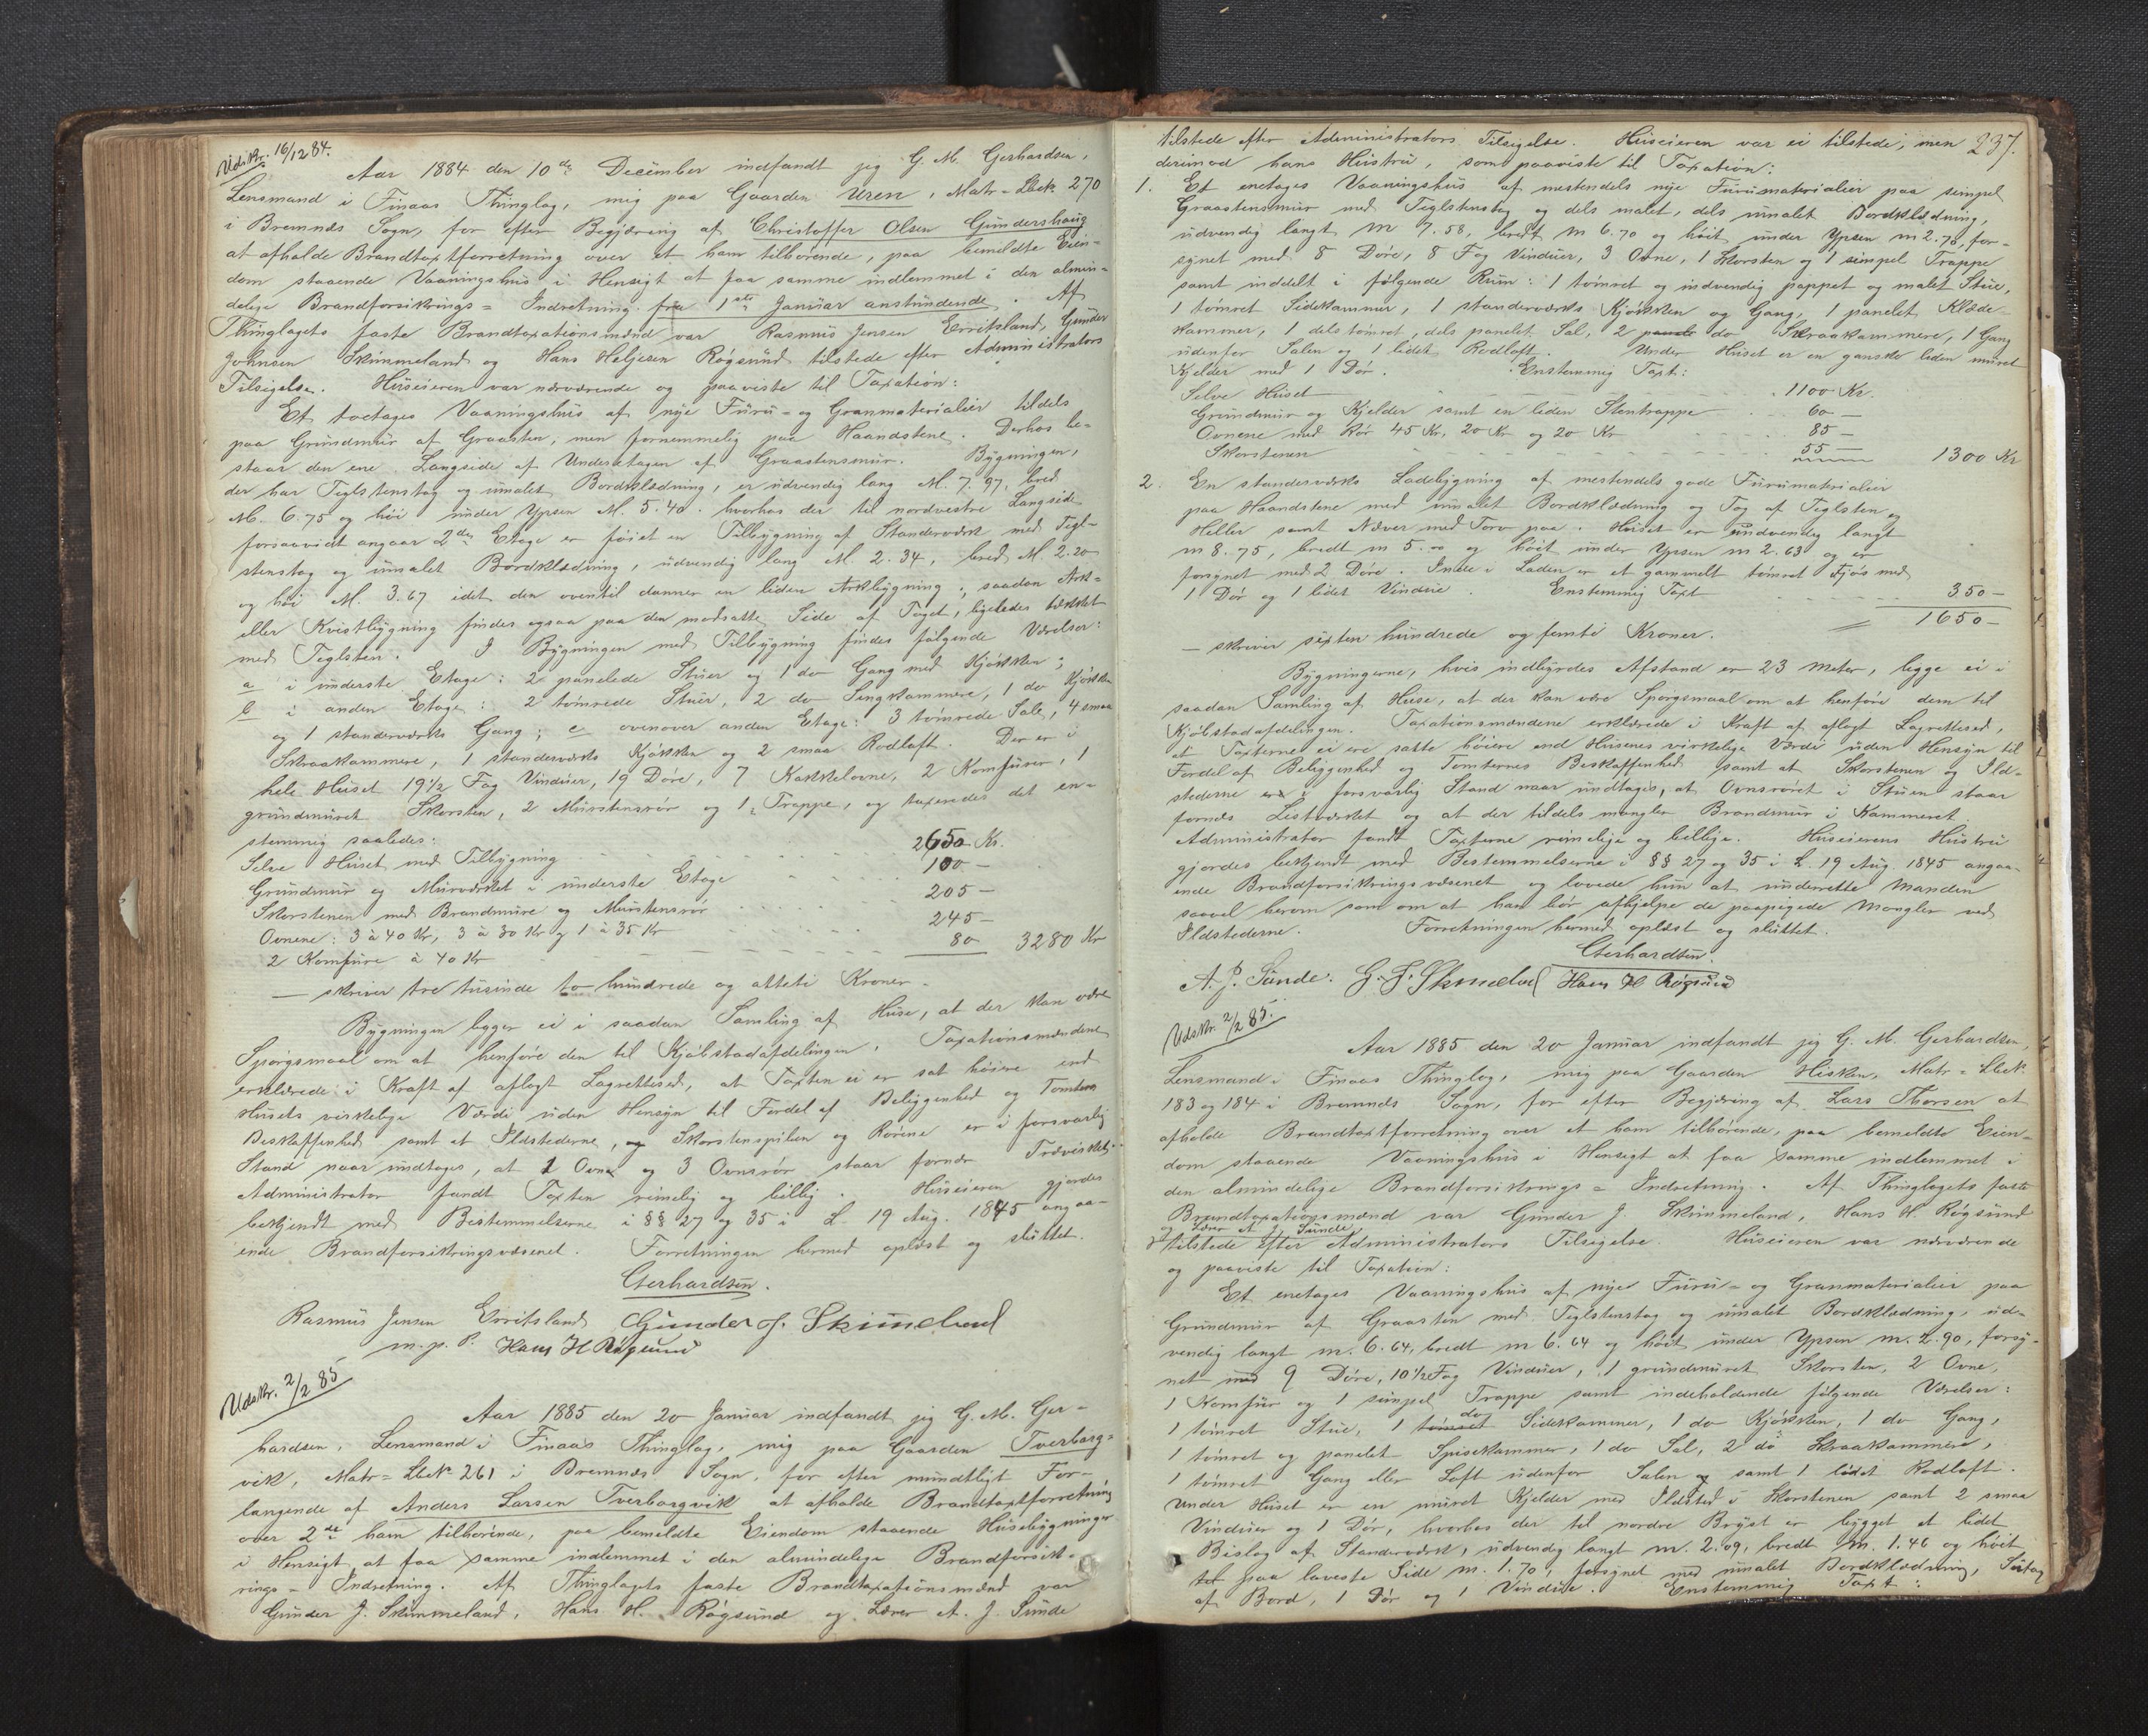 Udskr. 16/12 84.
Aar 1884 den 10de December indfandt jeg G. M. Gerhardsen,
Lensmand i Finaas Thinglag, mig paa Gaarden Uren, Matr-Lbek. 270
i Bremnæs Sogn, for efter Begjæring af Christoffer Olsen Gundershaug
at afholde Brandtaxtforretning over et ham tilhørende, paa bemeldte Eien-
dom staaende Vaaningshus i Hensigt at faa samme indlemmet i den almin-
delige Brandforsikrings-Indretning fra 1ste Januar anstundende. Af
Thinglagets faste Brandtaxationsmænd var Rasmus Jensen Erritsland, Gunder
Johnsen Skimmeland og Hans Heljesen Røgsund tilstede efter Administrators
Tilsigelse. Huseieren var nærværende og paaviste til Taxation:
Et toetages Vaaningshus af nye Furu- og Granmaterialier tildels
paa Grundmur af Graasten, men fornemmelig paa Haandstene. Derhos be-
staar den ene Langside af Underetagen af Graastensmur. Bygningen,
der har Teglstenstag og umalet Bordklædning, er udvendig lang M. 7.97, bred
M. 6.75 og høi under Ypsen M. 5.40. hvorhos der til nordvestre Langside
forsaavidt angaar 2den Etage er føiet en Tilbygning af Standerværk med Tegl-
stenstag og umalet Bordklædning, udvendig lang M. 2.34, bred M. 2.20
og høi M. 3.67 idet den oventil danner en liden Arkbygning; saadan Ark-
eller Kvistbygning findes ogsaa paa den modsatte Side af Taget, ligeledes tækket
med Teglsten. I Bygningen med Tilbygning findes følgende Værelser:
a i underste Etage: 2 panelede Stuer og 1 do Gang med Kjøkken;
b i anden Etage: 2 tømrede Stuer, 2 do Sengkammere, 1 do Kjøkken
og 1 standerværks Gang; c ovenover anden Etage: 3 tømrede Sale, 4 smaa
Skraakammere, 1 standerværks Kjøkken og 2 smaa Rodloft. Der er i
hele Huset 19½ Fag Vinduer, 19 Døre, 7 Kakkelovne, 2 Komfurer, 1
grundmuret Skorsten, 2 Murstensrør og 1 Trappe, og taxeredes det en-
stemmig saaledes:
Selve Huset med Tilbygning 2650 Kr.
Grundmur og Murværket i underste Etage 100 -
Skorstenen med Brandmure og Murstensrør 205 -
Ovnene: 3 à 40 Kr, 3 à 30 Kr og 1 à 35 Kr 245 -
2 Komfure à 40 Kr 80 3280 Kr
- skriver tre tusinde to hundrede og otteti Kroner.
Bygningen ligger ei i saadan Samling af Huse, at der kan være
Spørgsmaal om at henføre den til Kjøbstadafdelingen. Taxationsmændene
erklærede i Kraft af aflagt Lagrettesed, at Taxten ei er sat høiere end
Husets virkelige Værdi uden Hensyn til Fordel af Beliggenhed og Tomtens
Beskaffenhed samt at Ildstederne, og Skorstenspiben og Rørene er i forsvarlig
Stand naar undtages, at 1 Ovn og 3 Ovnsrør staar fornær Træværket.
Administrator fandt Taxten rimelig og billig. Huseieren gjordes
bekjendt med Bestemmelserne i §§ 27 og 35 i L 19 Aug. 1845 angaa-
ende Brandforsikringsvæsenet. Forretningen hermed oplæst og sluttet.
Gerhardsen.
Rasmus Jensen Erritsland Gunder J. Skimeland
m. p. P. Hans H Røgsund
Udskr. 2/2 85
Aar 1885 den 20 Januar indfandt jeg G. M. Ger-
hardsen, Lensmand i Finaas Thinglag, mig paa Gaarden Tverborg-
vik, Matr-Lbek 261 i Bremnæs Sogn, for efter mundtligt For-
langende af Anders Larsen Tverborgvik at afholde Brandtaxtforretning
over 2de ham tilhørende, paa bemeldte Eiendom staaende Husebygninger
i Hensigt at faa samme indlemmet i den almindelige Brandforsik-
rings-Indretning. Af Thinglagets faste Brandtaxationsmænd var
Gunder J. Skimmeland, Hans H. Røgsund og Lærer A. J. Sunde
237.
tilstede efter Administrators Tilsigelse. Huseieren var ei tilstede, men
derimod hans Hustru, som paaviste til Taxation:
1. Et enetages Vaaningshus af mestendels nye Furumaterialier paa simpel
Graastensmur med Teglstenstag og dels malet, dels umalet Bordklædning,
udvendig langt M 7.58, bredt m 6.70 og høit under Ypsen m 2.78, for-
synet med 8 Døre, 8 Fag Vinduer, 3 Ovne, 1 Skorsten og 1 simpel Trappe
samt inddelt i følgende Rum: 1 tømret og indvendig pappet og malet Stue,
1 tømret Sidekammer, 1 standerværks Kjøkken og Gang, 1 panelet Klæde-
kammer, 1 dels tømret, dels panelet Sal, 2 do Skraakammere, 1 Gang
udenfor Salen og 1 lidet Rodloft. Under Huset er en ganske liden muret
Kjelder med 1 Dør. Enstemmig Taxt:
Selve Huset 1100 Kr.
Grundmur og Kjelder samt en liden Stentrappe 60 -
Ovnene med Rør 45 Kr, 20 Kr og 20 Kr 85 -
Skorstenen 55 - 1300 Kr
2. En standerværks Ladebygning af mestendels gode Furumaterialier
paa Haandstene med umalet Bordklædning og Tag af Teglsten og
Heller samt Næver med Torv paa. Huset er udvendig langt
m 8.75, bredt m 5.00 og høit under Ypsen m 2.63 og er
forsynet med 2 Døre. Inde i Laden er et gammelt tømret Fjøs med
1 Dør og 1 lidet Vindue. Enstemmig Taxt 350 -
1650 -
- skriver sexten hundrede og femti Kroner.
Bygningerne, hvis indbyrdes Afstand er 23 Meter, ligge ei i
saadan Samling af Huse, at der kan være Spørgsmaal om at henføre dem til
Kjøbstadafdelingen. Taxationsmændene erklærede i Kraft af aflagt Lagrettesed,
at Taxterne ei ere satte høiere end Husenes virkelige Værdi uden Hensyn til
Fordel af Beliggenhed og Tomternes Beskaffenhed samt at Skorstenen og Ild-
stederne er i forsvarlig Stand naar undtages, at Ovnsrøret i Stuen staar
fornær Listværket og at der tildels mangler Brandmur i Kammeret.
Administrator fandt Taxterne rimelige og billige. Huseierens Hustru
gjordes bekjendt med Bestemmelserne i §§ 27 og 35 i L 19 Aug. 1845 angaa-
ende Brandforsikringsvæsenet og lovede hun at underrette Manden
saavel herom som om at han bør afhjelpe de paapegede Mangler ved
Ildstederne. Forretningen hermed oplæst og sluttet.
Gerhardsen.
A. J. Sunde. G. J. Skimeland Hans H Røgsund
Udskr. 2/2 85.
Aar 1885 den 20 Januar indfandt jeg G. M. Gerhardsen,
Lensmand i Finaas Thinglag, mig paa Gaarden Hisken, Matr-Lbek
183 og 184 i Bremnæs Sogn, for efter Begjæring af Lars Thorsen at
afholde Brandtaxtforretning over et ham tilhørende, paa bemeldte Eien-
dom staaende Vaaningshus i Hensigt at faa samme indlemmet i
den almindelige Brandforsikrings-Indretning. Af Thinglagets faste
Brandtaxationsmænd var Gunder J. Skimmeland, Hans H Røgsund
og Lærer A. J. Sunde
tilstede efter Administrators Tilsigelse. Huseieren var nærværende
og paaviste til Taxation:
Et enetages Vaaningshus af nye Furu- og Granmaterialier paa
Grundmur af Graasten med Teglstenstag og umalet Bordklædning, ud-
vendig langt m. 6.64, bredt m 6.64 og høit under Ypsen m. 2.90, forsy-
net med 9 Døre, 10½ Fag Vinduer, 1 grundmuret Skorsten, 2 Ovne,
1 Komfur og 1 simpel Trappe samt indeholdende følgende Værelser:
1 tømret Stue, 1 tømret do Sidekammer, 1 do Kjøkken, 1 do Gang,
1 tømret og panelet Spisekammer, 1 do Sal, 2 do Skraakammere,
1 tømret Gang eller Loft udenfor Salen og samt 1 lidet Rodloft.
Under Huset er en muret Kjelder med Ildsted i Skorstenen samt 2 smaa
Vinduer og 1 Dør, hvorhos der til nordre Bryst er bygget et lidet
Bislag af Standerværk, udvendig langt m. 2.09, bredt m. 1.46 og høit
paa laveste Side m. 1.70, forsynet med umalet Bordklædning, Sutag
af Bord, 1 Dør og 1 Vindue. Enstemmig Taxt: